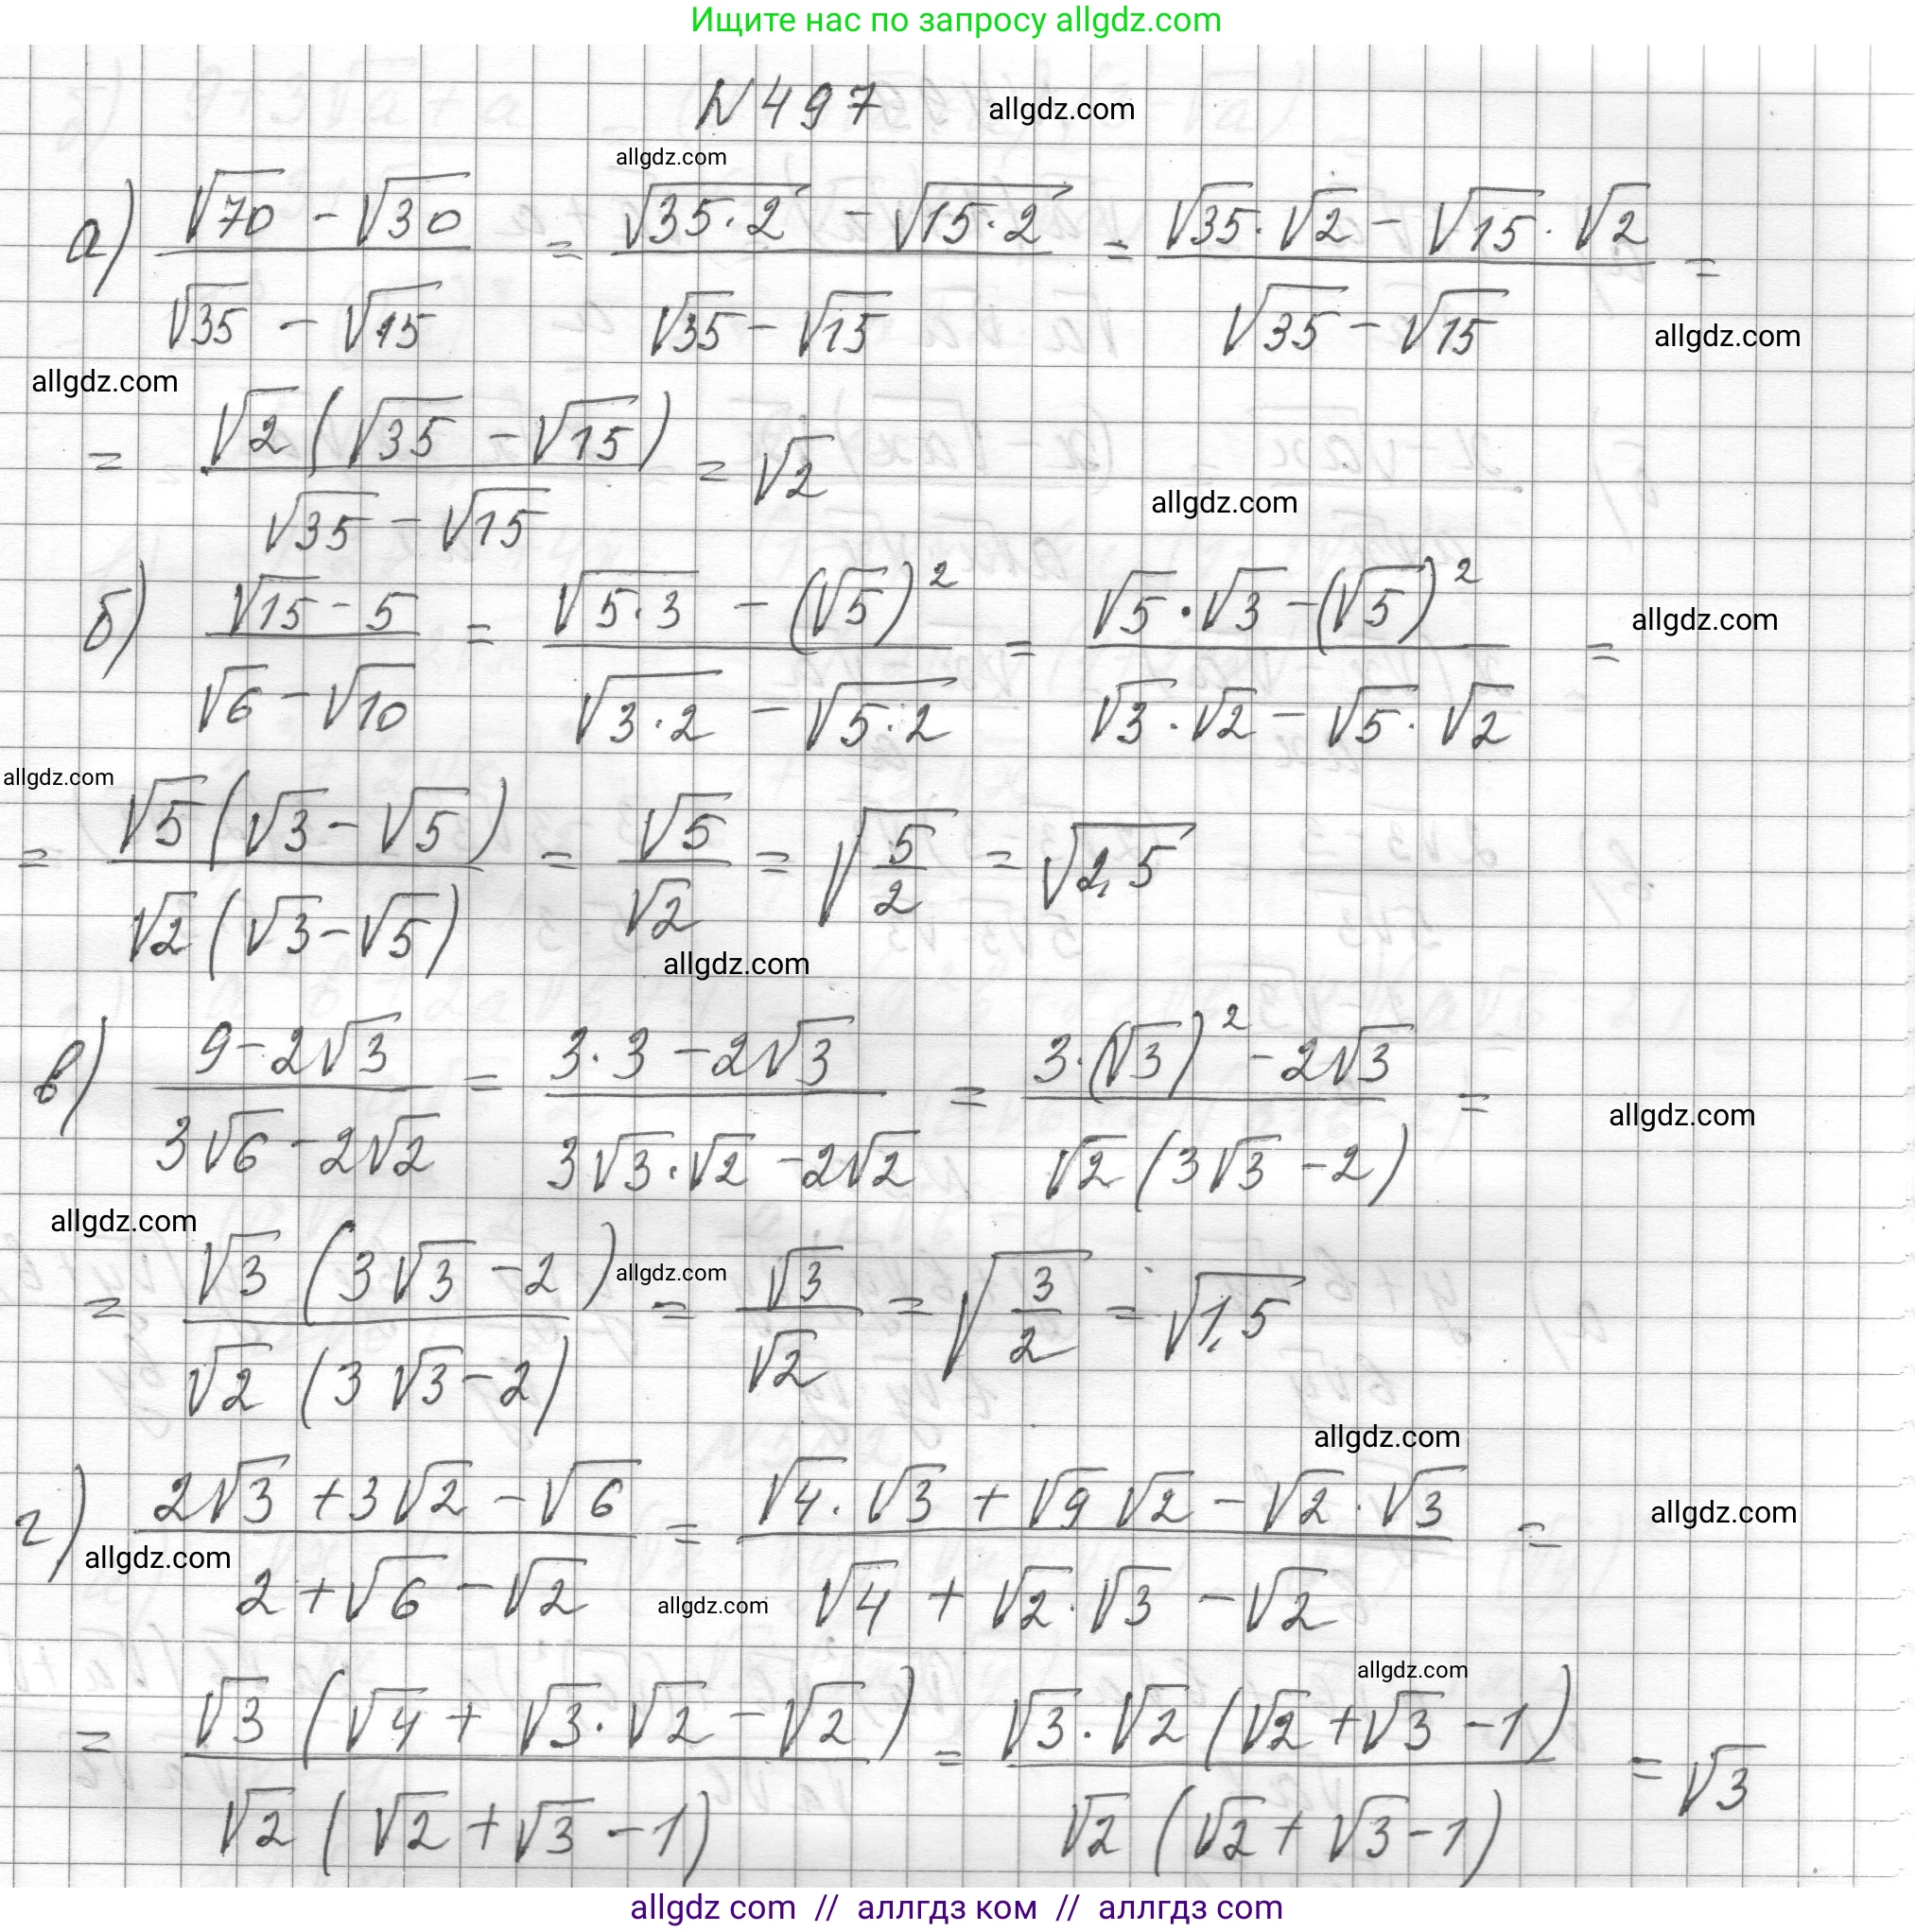 Ищите нас по запросу allgdz.com
N 497 allgdz.com
allgdz.com
а) (√70 - √30)/(√35 - √15) = (√(35·2) - √(15·2))/(√35 - √15) = (√35·√2 - √15·√2)/(√35 - √15) =
allgdz.com
allgdz.com
= √2(√35 - √15)/(√35 - √15) = √2
allgdz.com
б) (√15 - 5)/(√6 - √10) = (√(5·3) - (√5)²)/(√(3·2) - √(5·2)) = (√5·√3 - (√5)²)/(√3·√2 - √5·√2) =
allgdz.com
allgdz.com
= √5(√3 - √5)/(√2(√3 - √5)) = √5/√2 = √(5/2) = √2,5
allgdz.com
в) (9 - 2√3)/(3√6 - 2√2) = (3·3 - 2√3)/(3√3·√2 - 2√2) = (3·(√3)² - 2√3)/(√2(3√3 - 2)) =
allgdz.com
allgdz.com
= √3(3√3 - 2)/(√2(3√3 - 2)) = √3/√2 = √(3/2) = √1,5
allgdz.com
allgdz.com
г) (2√3 + 3√2 - √6)/(2 + √6 - √2) = (√4·√3 + √9√2 - √2·√3)/(√4 + √2·√3 - √2) =
allgdz.com
allgdz.com
allgdz.com
allgdz.com
= √3(√4 + √3·√2 - √2)/(√2(√2 + √3 - 1)) = √3·√2(√2 + √3 - 1)/(√2(√2 + √3 - 1)) = √3
allgdz com // аллгдз ком // аллгдз com